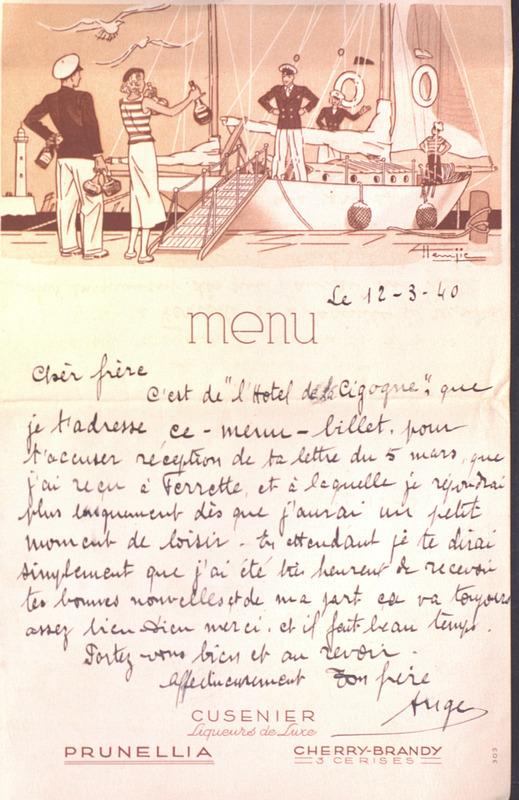 Hemjic
Le 12-3-40
menu
Chèr frère
C'est de "l'Hotel de la Cigogne", que
je t'adresse ce - menu - billet, pour
t'accuser réception de ta lettre du 5 mars, que
j'ai reçu à Ferrette, et à laquelle je répondrai
plus longuement dès que j'aurai un petit
moment de loisir - En attendant je te dirai
simplement que j'ai été très heureux de recevoir
tes bonnes nouvelles et de ma part ca va toujours
assez bien Dieu merci, et il fait beau temps.
Portez-vous bien et au revoir.
Affectueusement Ton frère
Ange
CUSENIER
Liqueurs de Luxe
PRUNELLIA
CHERRY-BRANDY
3 CERISES
303